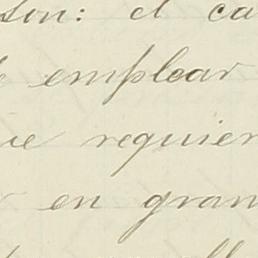 son: el ca
emplear
ue requier
en gran